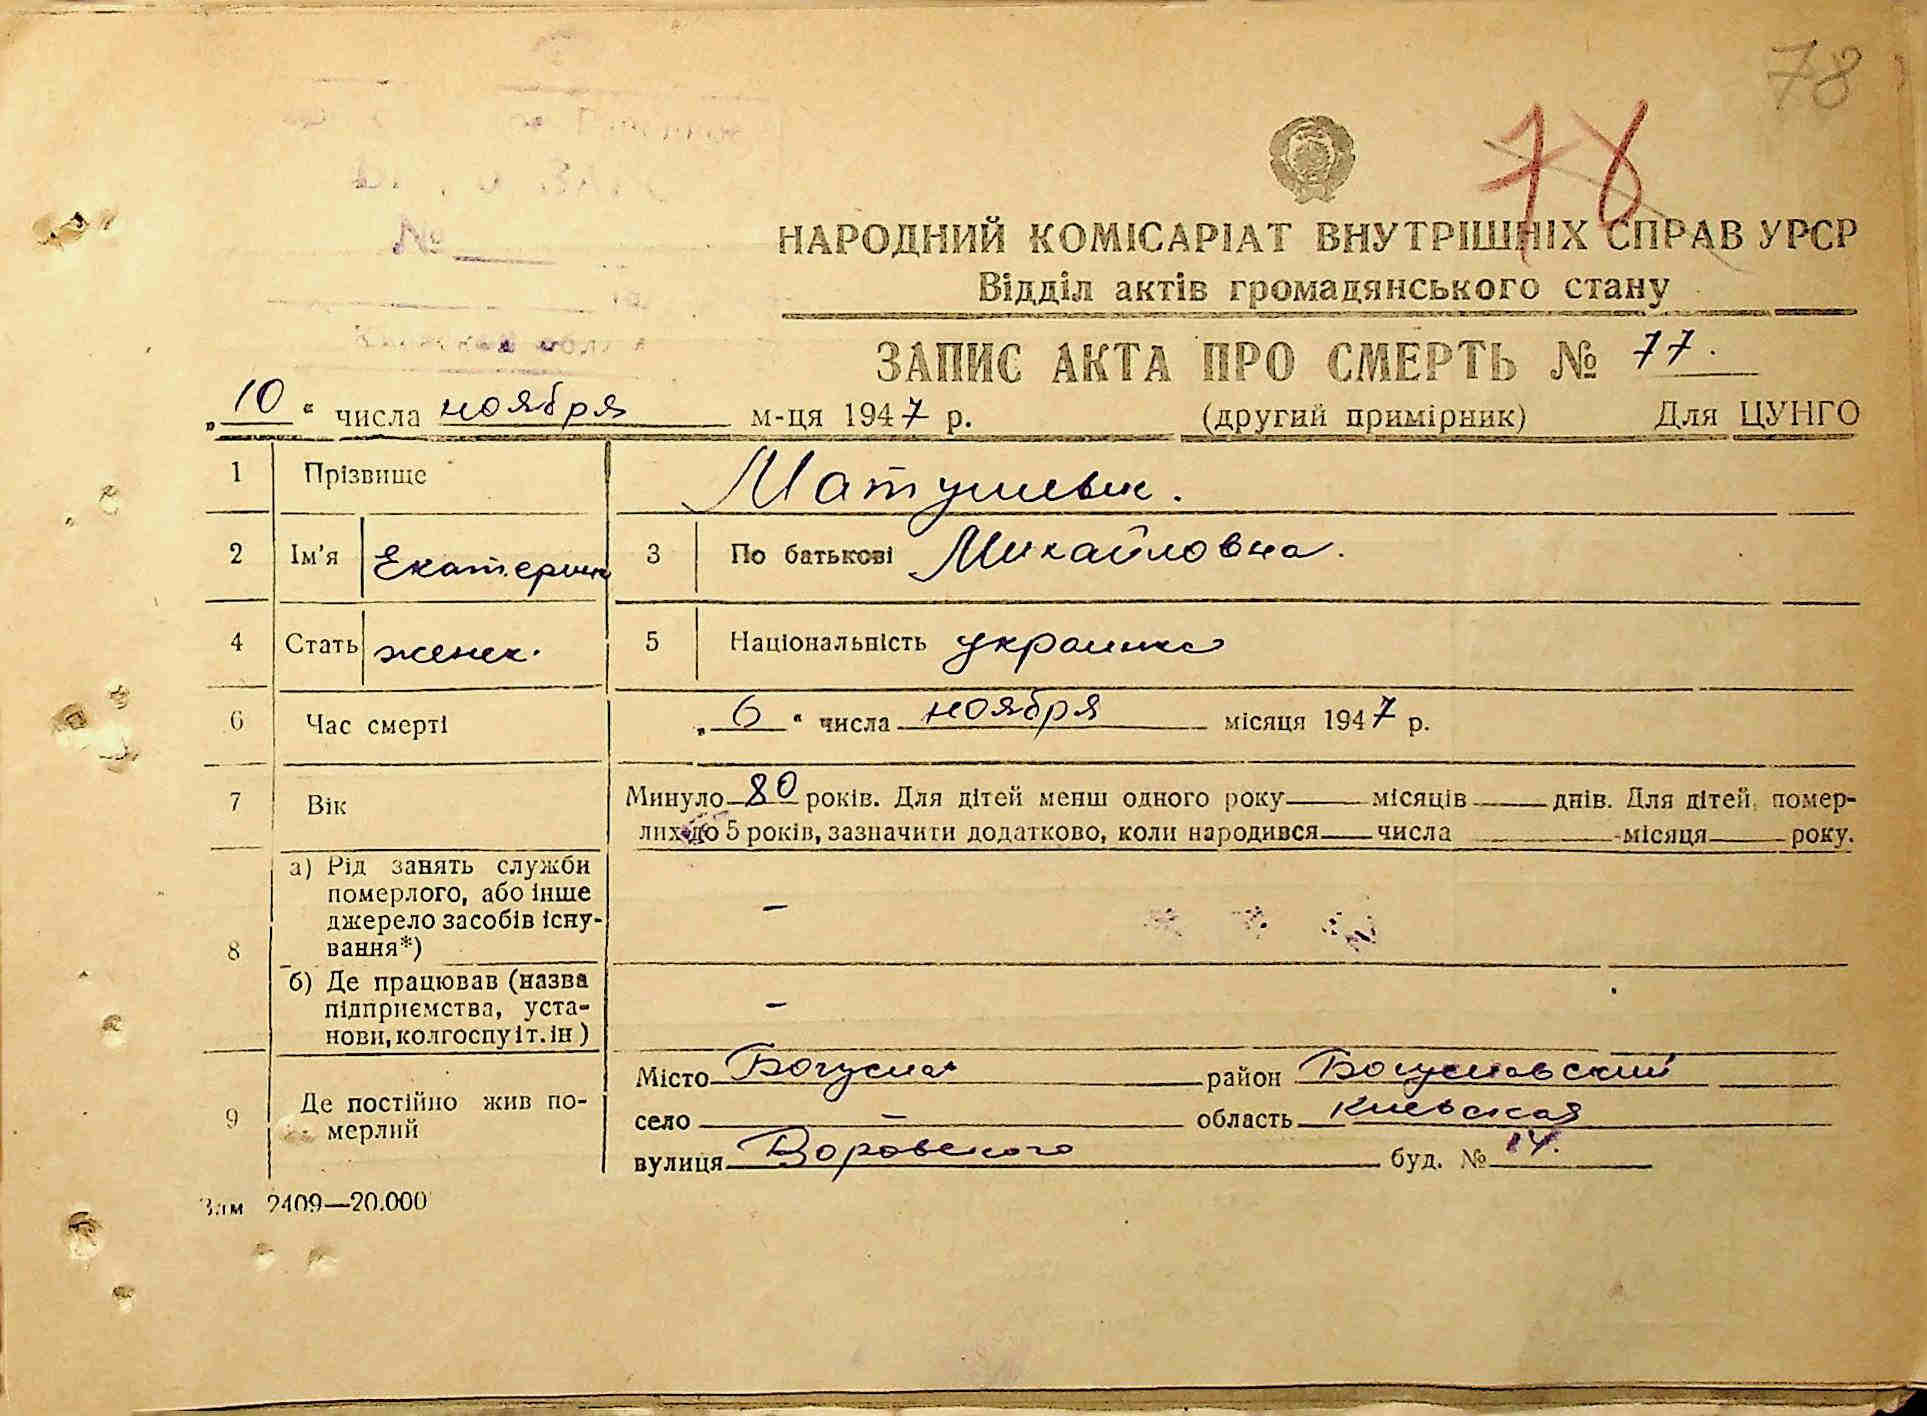 78
78
НАРОДНИЙ КОМІСАРІАТ ВНУТРІШНІХ СПРАВ УРСР
Відділ актів громадянського стану
ЗАПИС АКТА ПРО СМЕРТЬ № 77.
„10“ числа ноября м-ця 1947 р. (другий примірник) Для ЦУНГО
1 Прізвище
2 Ім'я Екатерина 3 По батькові Михайловна.
4 Стать женск. 5 Національність украинка
6 Час смерті „6“ числа ноября місяця 1947 р.
7 Вік Минуло 80 років. Для дітей менш одного року місяців днів. Для дітей, помер-
лих до 5 років, зазначити додатково, коли народився числа місяця року.
8 а) Рід занять служби
померлого, або інше
джерело засобів існу-
вання*) –
б) Де працював (назва
підприємства, уста-
нови, колгоспу і т. ін) –
9 Де постійно жив по-
мерлий
Місто Богуслав район Богуславский
село – область Киевская
вулиця Воровского буд. № 14.
Зам 2409—20.000